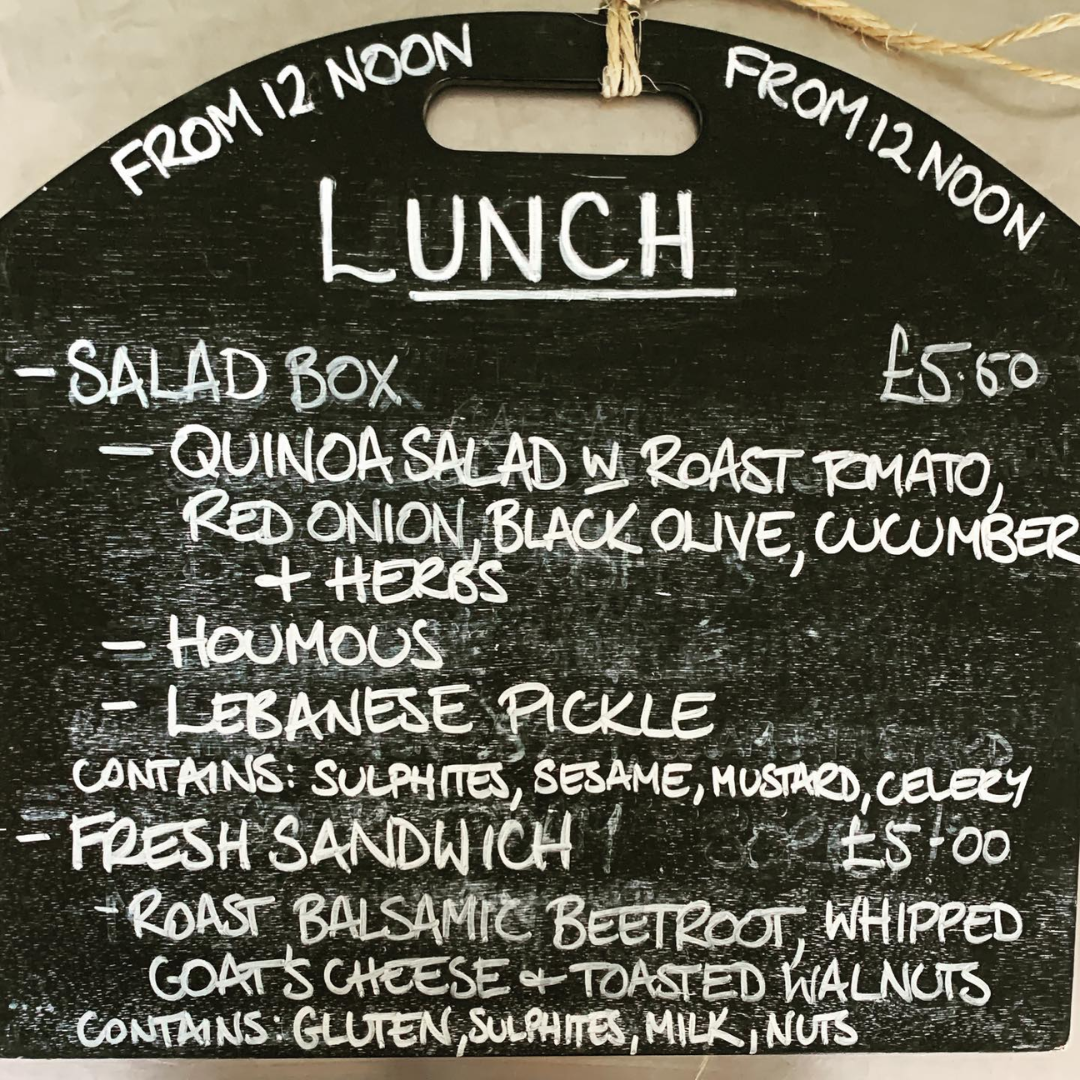 FROM 12 NOON
FROM 12 NOON
LUNCH
- SALAD BOX £5.50
- QUINOA SALAD W ROAST TOMATO,
RED ONION, BLACK OLIVE, CUCUMBER
+ HERBS
- HOUMOUS
- LEBANESE PICKLE
CONTAINS: SULPHITES, SESAME, MUSTARD, CELERY
- FRESH SANDWICH £5.00
- ROAST BALSAMIC BEETROOT, WHIPPED
GOAT'S CHEESE + TOASTED WALNUTS
CONTAINS: GLUTEN, SULPHITES, MILK, NUTS